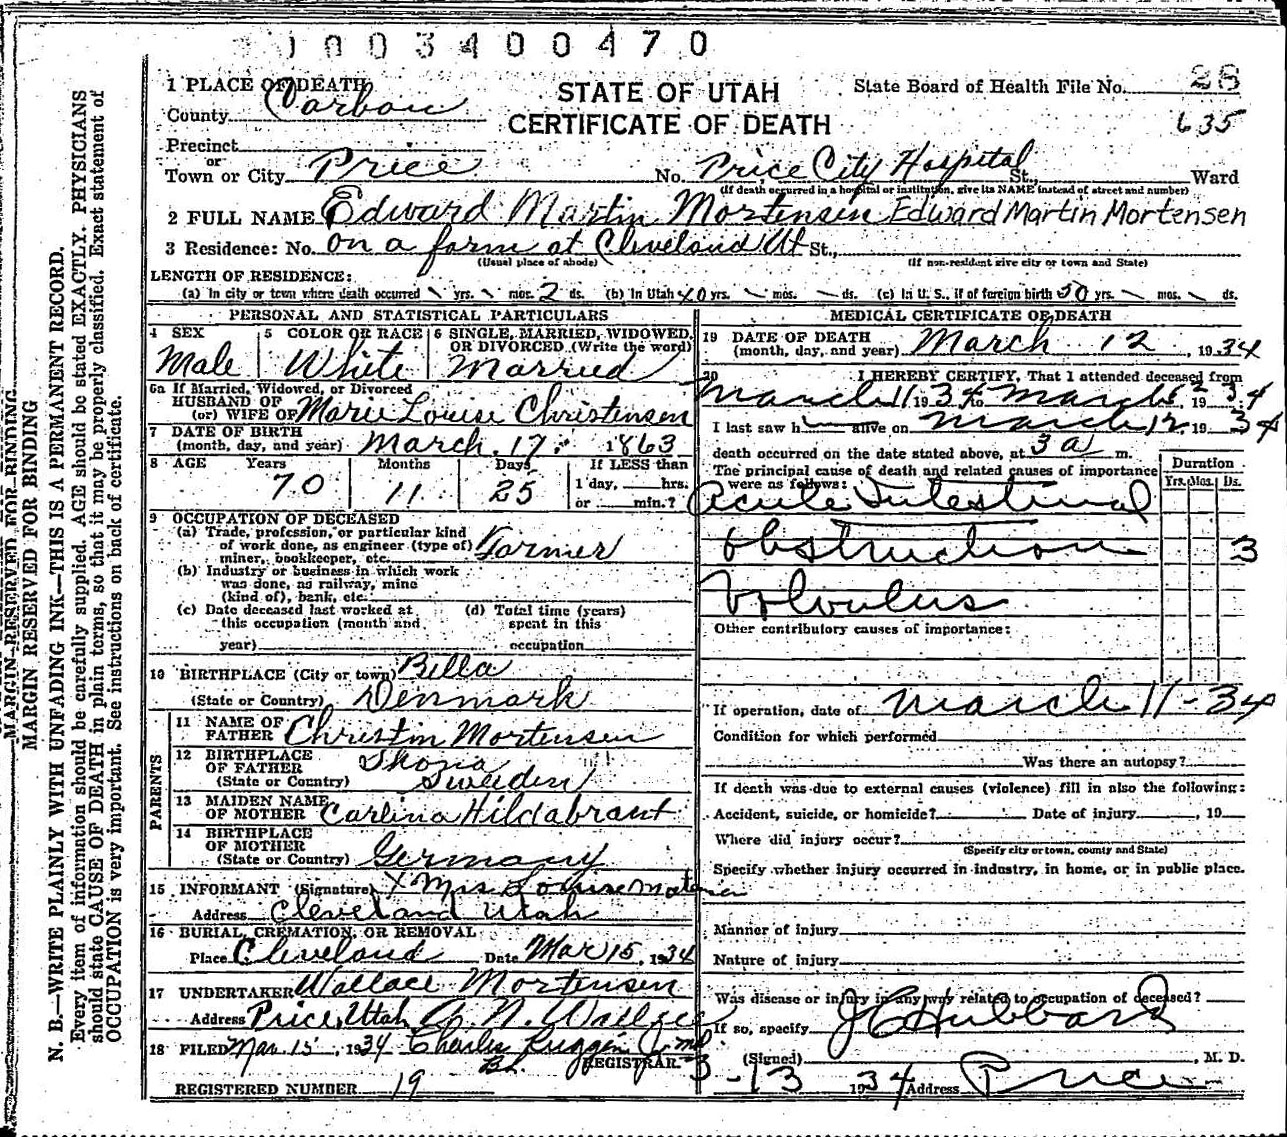 1003400470
1 PLACE OF DEATH
County Carbon
STATE OF UTAH
CERTIFICATE OF DEATH
State Board of Health File No. 28
635
Precinct
or
Town or City Price No. Price City Hospital St., Ward
(If death occurred in a hospital or institution, give its NAME instead of street and number)
2 FULL NAME Edward Martin Mortensen Edward Martin Mortensen
3 Residence: No. on a farm at Cleveland Ut St.,
(Usual place of abode) (If non-resident give city or town and State)
LENGTH OF RESIDENCE:
(a) In city or town where death occurred yrs. mos. 2 ds. (b) In Utah 40 yrs. mos. ds. (c) In U. S., if of foreign birth 50 yrs. mos. ds.
PERSONAL AND STATISTICAL PARTICULARS
4 SEX
Male
5 COLOR OR RACE
White
6 SINGLE, MARRIED, WIDOWED,
OR DIVORCED (Write the word)
Married
6a If Married, Widowed, or Divorced
HUSBAND OF
(or) WIFE OF Marie Louise Christensen
7 DATE OF BIRTH
(month, day, and year) March 17 1863
8 AGE Years Months Days If LESS than
70 11 25 1 day, hrs.
or min.?
9 OCCUPATION OF DECEASED
(a) Trade, profession, or particular kind
of work done, as engineer (type of) Farmer
miner, bookkeeper, etc.
(b) Industry or business in which work
was done, as railway, mine
(kind of), bank, etc.
(c) Date deceased last worked at (d) Total time (years)
this occupation (month and spent in this
year) occupation
10 BIRTHPLACE (City or town) Billa
(State or Country) Denmark
PARENTS
11 NAME OF
FATHER Christin Mortensen
12 BIRTHPLACE
OF FATHER Skona
(State or Country) Sweden
13 MAIDEN NAME
OF MOTHER Carlina Hildabrant
14 BIRTHPLACE
OF MOTHER
(State or Country) Germany
15 INFORMANT (Signature) X Mrs Louise
Address Cleveland Utah
16 BURIAL, CREMATION, OR REMOVAL
Place Cleveland Date Mar 15, 1934
17 UNDERTAKER Wallace Mortensen
Address Price, Utah
18 FILED Mar 15, 1934 Charles Ruggeri Jr. md
REGISTRAR
REGISTERED NUMBER 19
MEDICAL CERTIFICATE OF DEATH
19 DATE OF DEATH
(month, day, and year) March 12, 1934
20 I HEREBY CERTIFY, That I attended deceased from
March 11 1934 to March 1934
I last saw h alive on March 12, 1934
death occurred on the date stated above, at 3 a m.
The principal cause of death and related causes of importance
were as follows:
Duration
Yrs. Mos. Ds.
Acute Intestinal
obstruction 3
Volvulus
Other contributory causes of importance:
If operation, date of March 11-34
Condition for which performed
Was there an autopsy?
If death was due to external causes (violence) fill in also the following:
Accident, suicide, or homicide? Date of injury, 19
Where did injury occur?
(Specify city or town, county and State)
Specify whether injury occurred in industry, in home, or in public place.
Manner of injury
Nature of injury
Was disease or injury in any way related to occupation of deceased?
If so, specify
(Signed) J C Hubbard, M. D.
3-13 1934 Address Price
MARGIN RESERVED FOR BINDING
MARGIN RESERVED FOR BINDING
N. B.—WRITE PLAINLY WITH UNFADING INK—THIS IS A PERMANENT RECORD.
Every item of information should be carefully supplied. AGE should be stated EXACTLY. PHYSICIANS
should state CAUSE OF DEATH in plain terms, so that it may be properly classified. Exact statement of
OCCUPATION is very important. See instructions on back of certificate.